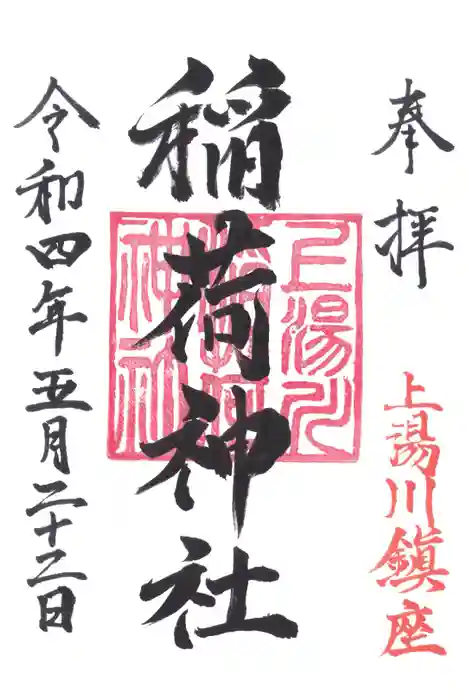 奉拝
上湯川鎮座
稲荷神社
上湯川
稲荷
神社
令和四年五月二十二日